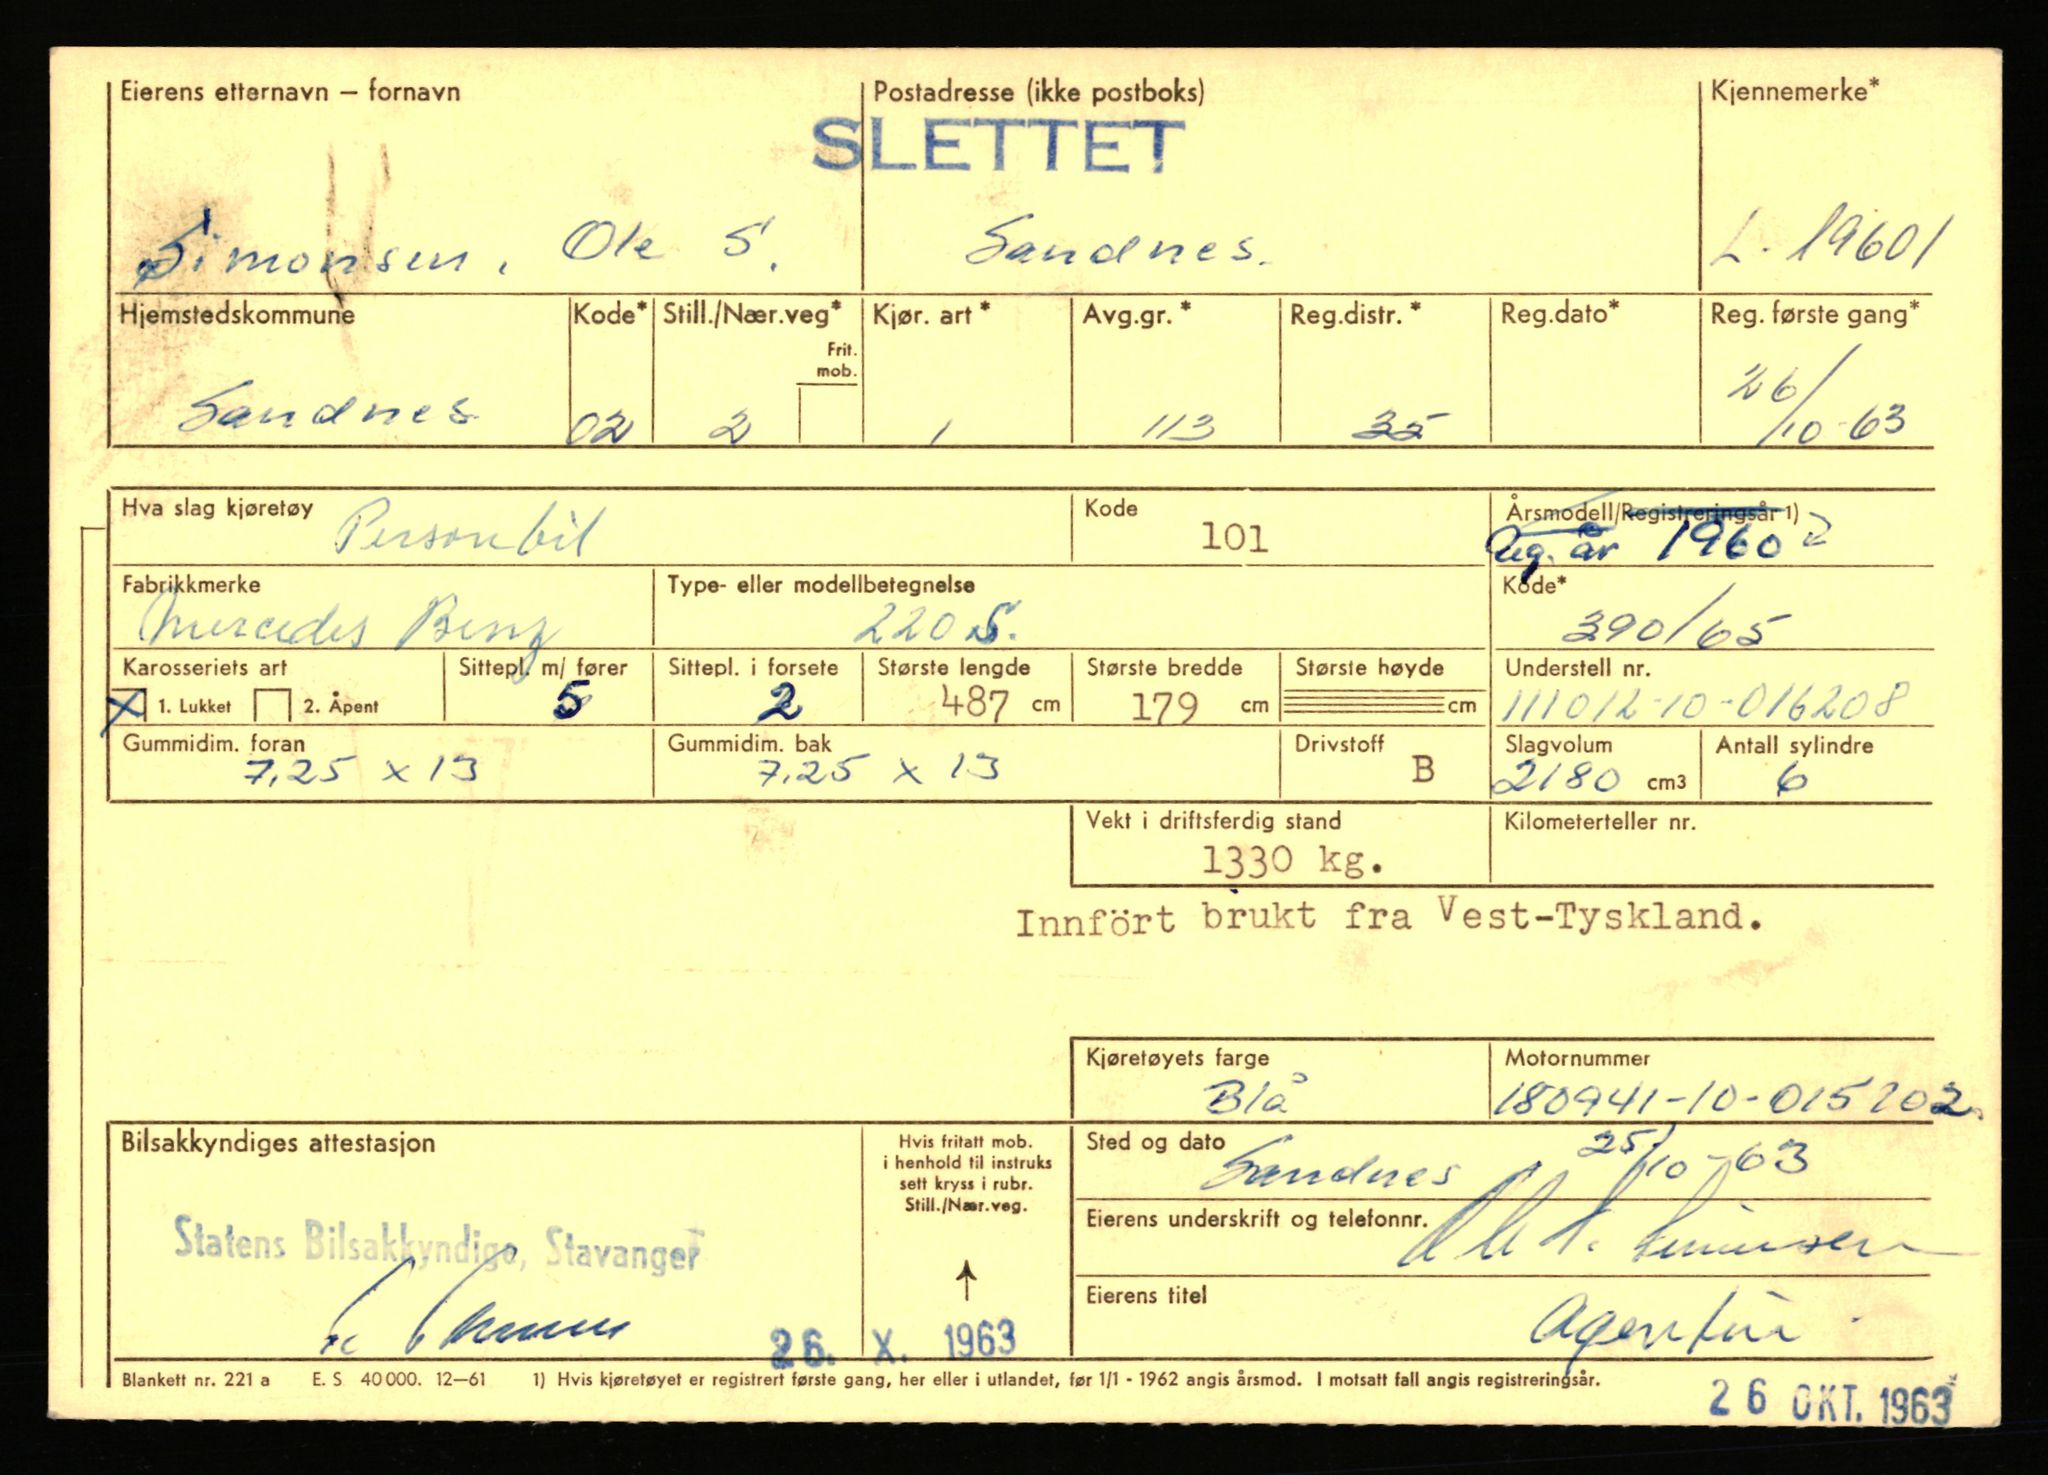 Eierens etternavn – fornavn
Postadresse (ikke postboks)
Kjennemerke*
SLETTET
Simonsen, Ole S.
Sandnes.
L. 19601
Hjemstedskommune
Kode*
Still./Nær.veg*
Kjør. art *
Avg.gr. *
Reg.distr. *
Reg.dato*
Reg. første gang*
Frit.
mob.
Sandnes
02
2
1
113
35
26/10-63
Hva slag kjøretøy
Personbil
Kode
101
Årsmodell/Registreringsår 1)
Reg. år 1960
Fabrikkmerke
Mercedes Benz
Type- eller modellbetegnelse
220 S.
Kode*
390/65
Karosseriets art
Sittepl. m/ fører
Sittepl. i forsete
Største lengde
Største bredde
Største høyde
Understell nr.
X 1. Lukket
2. Åpent
5
2
487 cm
179 cm
cm
111012-10-016208
Gummidim. foran
Gummidim. bak
Drivstoff
Slagvolum
Antall sylindre
7,25 x 13
7,25 x 13
B
2180 cm3
6
Vekt i driftsferdig stand
Kilometerteller nr.
1330 kg.
Innfört brukt fra Vest-Tyskland.
Kjøretøyets farge
Motornummer
Blå
180941-10-015202.
Bilsakkyndiges attestasjon
Hvis fritatt mob.
i henhold til instruks
sett kryss i rubr.
Still./Nær.veg.
Sted og dato
Sandnes 25/10-63
Statens Bilsakkyndige, Stavanger
Eierens underskrift og telefonnr.
Ole S. Simonsen
Eierens titel
Agentur
26. X. 1963
Blankett nr. 221 a E. S 40 000. 12–61 1) Hvis kjøretøyet er registrert første gang, her eller i utlandet, før 1/1 - 1962 angis årsmod. I motsatt fall angis registreringsår.
26 OKT. 1963